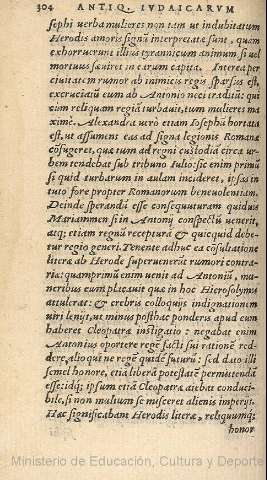 304 ANTIQ. IVDAICARVM
sephi uerba mulieres non tam ut indubitatum
Herodis amoris signũ interpretatæ sunt, quam
exhorruerunt illius tyrannicum animum, si uel
mortuus sæuiret in earum capita. Interea per
ciuitatem rumor ab inimicis regis sparsus est,
excruciatũ eum ab Antonio neci traditũ: qui
cum reliquam regiã turbauit, tum mulieres ma
ximè. Alexandra uerò etiam Iosephũ hortata
est, ut assumens eas ad signa legionis Romanæ
cõfugeret, quæ tum ad regni custodiã circa ur-
bem tendebat sub tribuno Iulio: sic enim primũ
si quid turbarum in aulam incideret, ipsas in
tuto fore propter Romanorum beneuolentiam.
Deinde sperandũ esse consequuturam quiduis
Mariammen si in Antonij conspectũ uenerit,
atq; etiam regnũ recepturã & quicquid debe-
tur regio generi. Penente adhuc ea cõsultatione
literæ ab Herode superuenerũt rumori contra-
riæ: quamprimũ enim uenit ad Antoniũ, mu-
neribus eum placauit quæ in hoc Hierosolymis
attulerat: & crebris colloquijs indignationem
uiri leniĵt, ut minus posthac ponderis apud eum
haberet Cleopatræ instigatio: negabat enim
Antonius oportere regẽ facti sui rationẽ red-
dere, alioqui ne regẽ quidẽ futurũ: sed dato illi
semel honore, etiã liberã potestatẽ permittendã
esse: idq; ipsum etiã Cleopatræ aiebat conduci-
bile, si non multum se misceret alienis imperijs.
Hæc significabam Herodis literæ, reliquumq;
honor
Ministerio de Educación, Cultura y Deporte